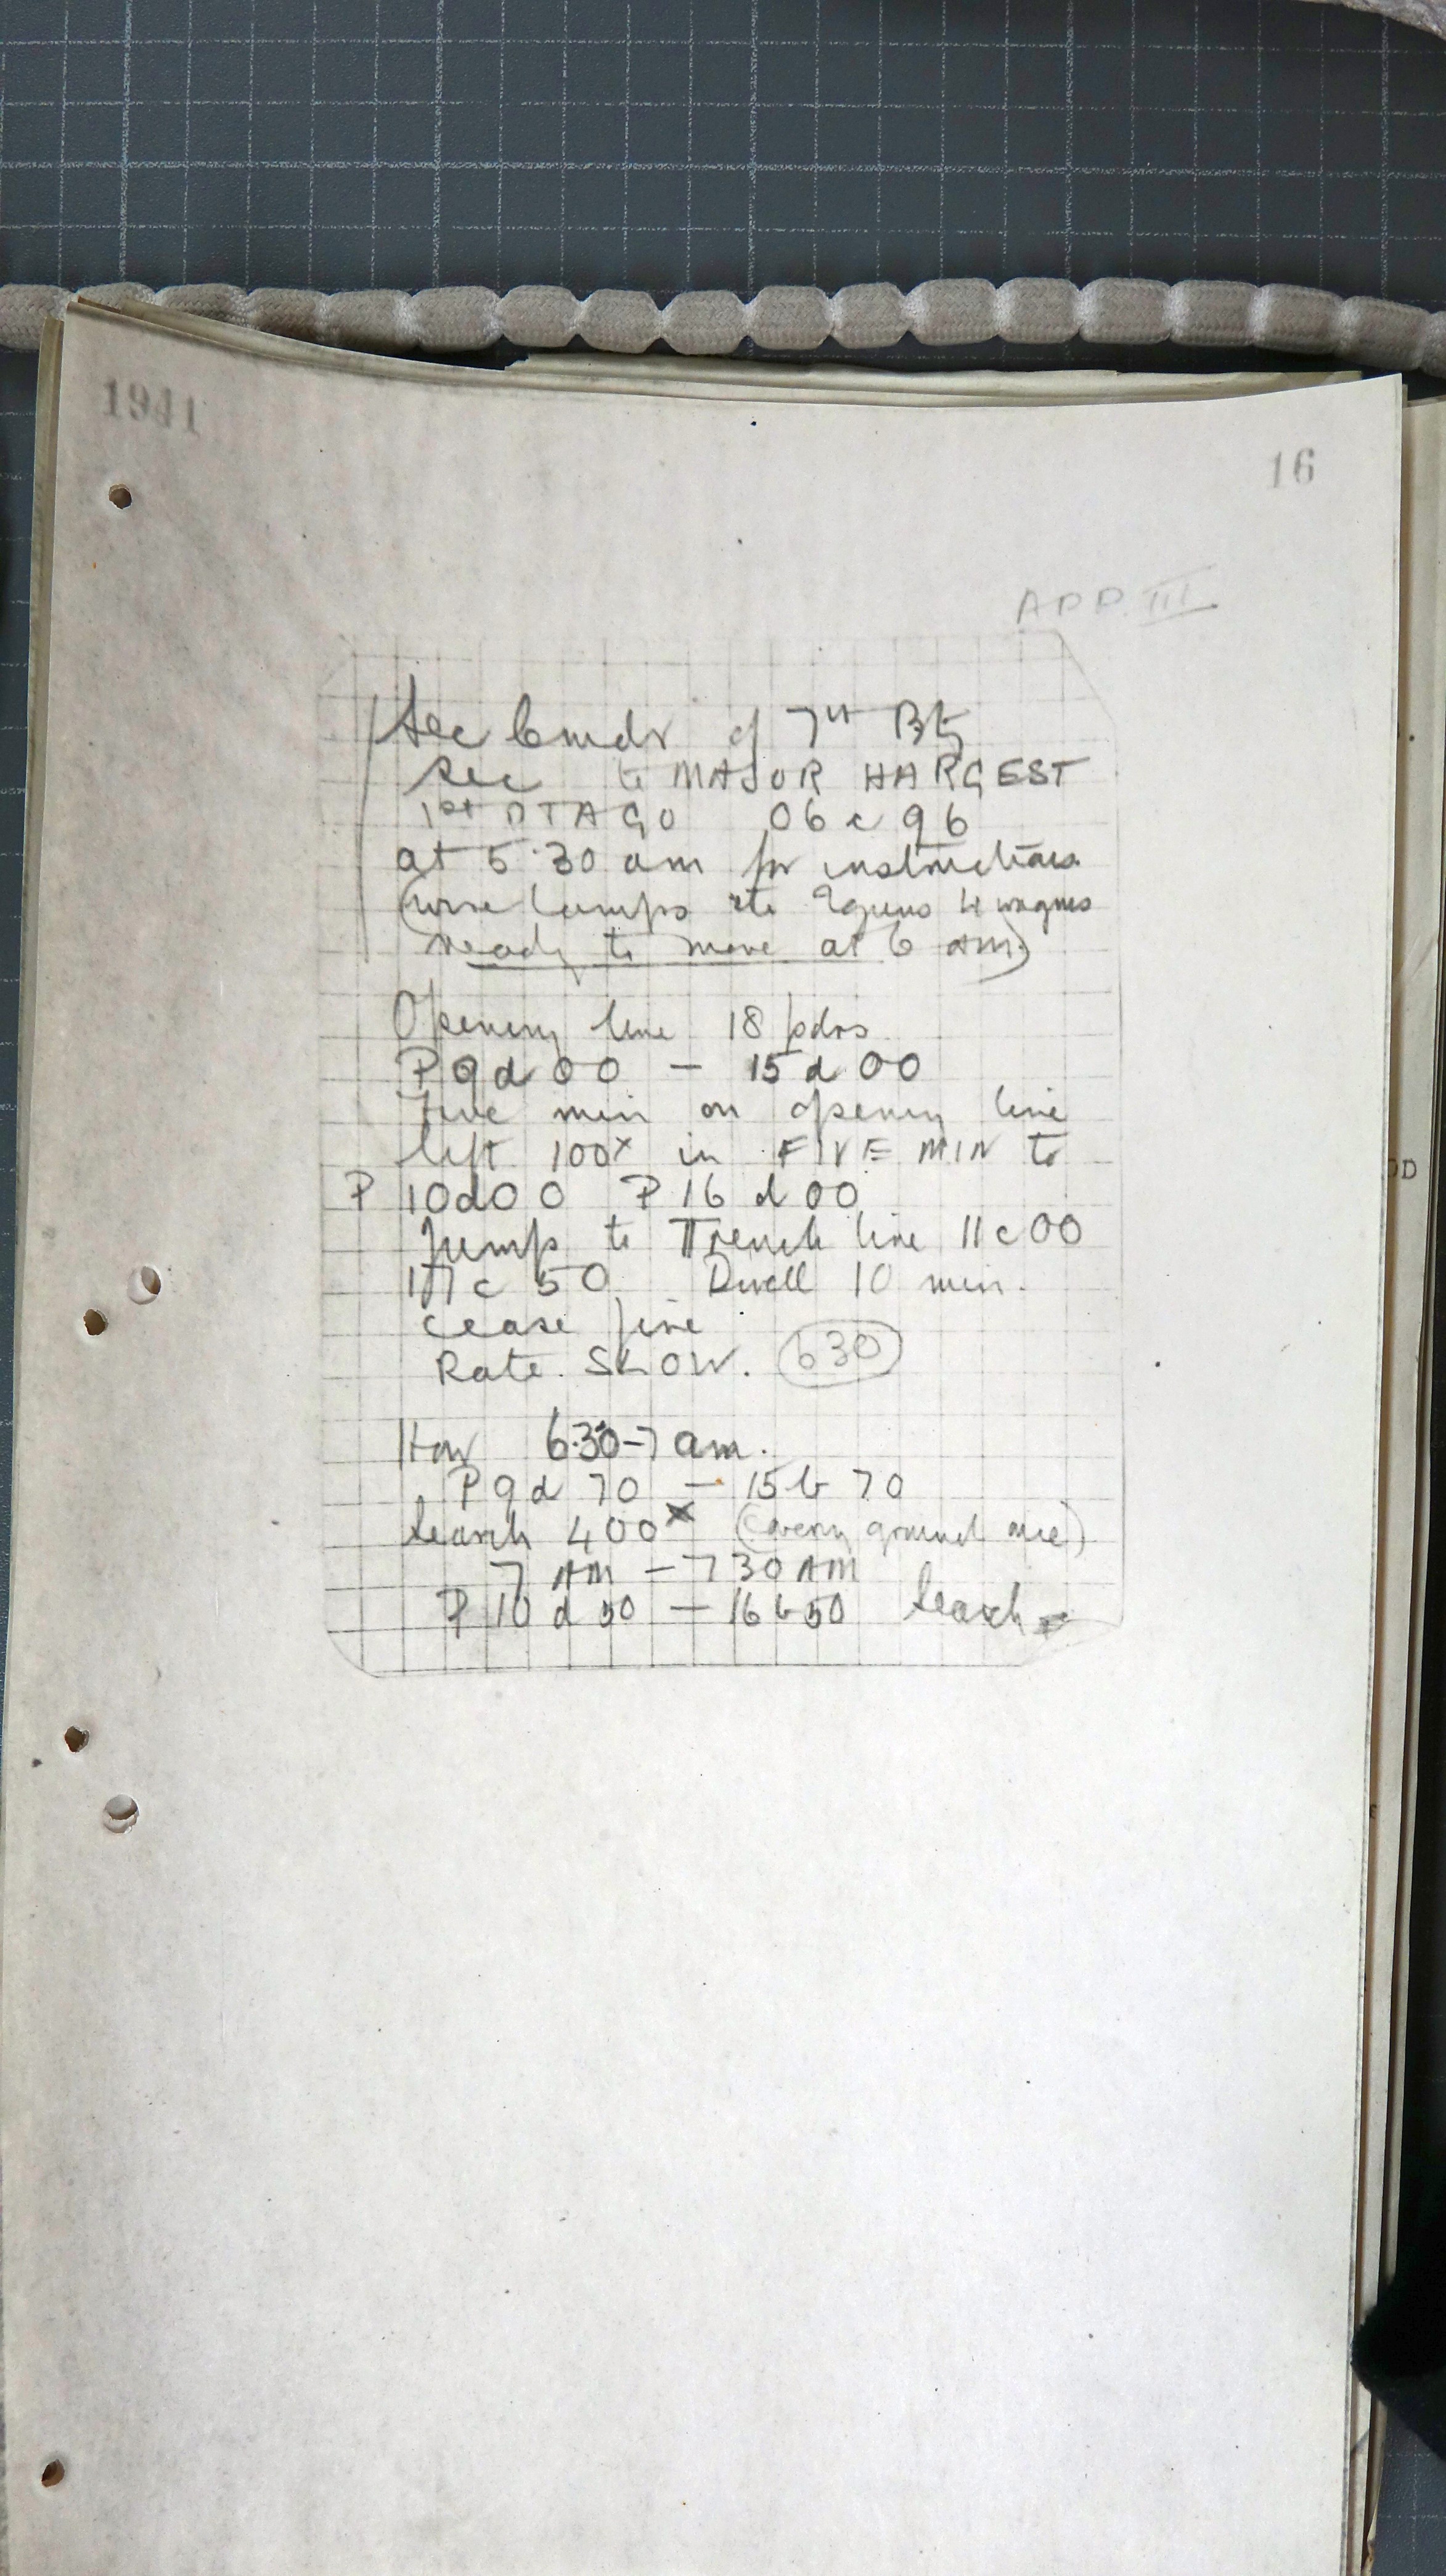 1941
16
APP. III
Sec Comdr of 7th Bty
Sec to MAJOR HARGEST
1st OTAGO 06 c 96
at 5.30 am for instructions
4 wagons
ready to move at 6 am)
Opening line 18 pdrs
P 9 d 00 — 15 d 00
Five min on opening line
lift 100x in FIVE MIN to
P 10 d 00 P 16 d 00
Jump to Trench line 11 c 00
17 c 50 Dwell 10 min.
cease fire
Rate. SLOW. 630
How 6.30-7 am.
P 9 d 70 — 15 b 70
Search 400x ground
7 AM — 7 30 AM
P 10 d 50 — 16 b 50 Search
DD